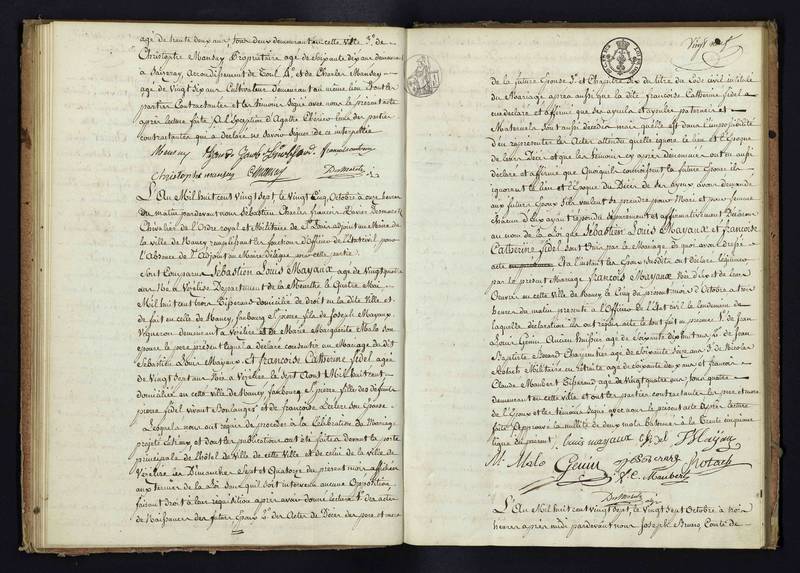 agé de trente deux ans, tous deux demeurant en cette Ville 3.° de
Christophe Mansuy Propriétaire agé de soixante dix ans demeurant
à Saizeray, Arrondissement de Toul 4.° et de Charles Mansuy
agé de Vingt six ans Cultivateur demeurant au même lieu Et ont les
parties Contractantes et les témoins signé avec nous le présent acte
après lecture faite, à l'Exception d'Agathe
contractantes qui a déclaré ne savoir signer de ce interpellée
Christophe mansuy CMansuy
L'An Mil huit cent vingt sept, le Vingt Cinq Octobre à onze heures
du matin pardevant nous Sébastien Charles François Xavier Desmarets
Chevalier de l'Ordre royal et Militaire de St. Louis adjoint au Maire de
la ville de Nancy remplissant les fonctions d'Officier de l'état civil pour
l'Absence de l'Adjoint au Maire délégué pour cette partie.
Sont Comparus Sébastien Louis Mayaux agé de Vingt quatre
ans Né à Vézelise Département de la Meurthe le Quatre Mai
Mil huit cent trois domicilié de droit en la dite Ville et
de fait en celle de Nancy, faubourg St. pierre fils de Joseph Mayaux
Vigneron demeurant à Vézelise et de Marie Marguerite Malo son
épouse le père présent lequel a déclaré consentir au Mariage du dit
Sébastien Louis Mayaux. Et Françoise Catherine fidel agée
de Vingt sept ans Née à Vézelise le sept Aout Mil huit cent
domiciliée en cette ville de Nancy faubourg St. pierre fille des défunts
pierre fidel vivant Boulanger et de Françoise Leclerc son Epouse
Lesquels nous ont requis de procéder à la Célébration du Mariage
projeté entr'eux et dont les publications ont été faites devant la porte
principale de l'hôtel de Ville de cette Ville et de celui de la Ville de
Vézelise les Dimanches Sept et Quatorze du présent mois affichées
aux termes de la loi sans qu'il soit intervenu aucune Opposition
faisant droit à leur réquisition après avoir donné lecture 1.° des actes
de Naissances des futurs Epoux 2.° des Actes de Décès des père et mère
de la future Epouse 3.° et Chapitre Six du titre du Code civil intitulé
du Mariage, après aussi que la dite françoise Catherine fidel a
aussi déclaré et affirmé que ses ayeuls et ayeules paternels et
Maternels sont aussi décédés mais qu'elle est dans l'impossibilité
d'en représenter les Actes attendu qu'elle ignore le lieu et l'Epoque
de leurs Décès et que les témoins cy après dénommés ont eu aussi
déclaré et affirmé que Quoiqu'ils connoissent la future Epouse ils
ignorent le lieu et l'Epoque du Décès de ses ayeux avons demandé
aux futurs Epoux s'ils veulent se prendre pour Mari et pour femme
chacun d'Eux ayant répondu séparément et affirmativement Déclarons
au nom de la Loi que Sébastien Louis Mayaux et Françoise
Catherine fidel sont Unis par le Mariage de quoi avons dressé
acte Et à l'instant les Epoux susdits ont déclaré légitimer
par le présent Mariage François Mayaux
Oeuvres en cette Ville de Nancy le Cinq du présent mois d'Octobre à trois
heures du matin présenté à l'Officier de l'Etat civil le lendemain de
laquelle déclaration
Louis Genin Ancien huissier agé de Soixante dix huit ans 2.° de Jean
Baptiste Bovard Charpentier agé de Soixante Seize ans 3.° de Nicolas
Robach Militaire en retraite agé de Soixante deux ans et François
Claude Maubert agé de Vingt quatre ans tous quatre
demeurant en cette Ville et ont les parties contractantes les père et mère
de l'Epoux et les témoins signé avec nous le présent acte Après lecture
faite. Approuvé la nullité de deux mots batonnés à la trente cinquième
ligne du présent. Louis mayaux C. fidel J Mayau
M. Malo Genin Bovard Robach
F. C. Maubert
L'An Mil huit cent vingt sept, le Vingt sept Octobre à trois
heures après midi pardevant nous Joseph Comte de